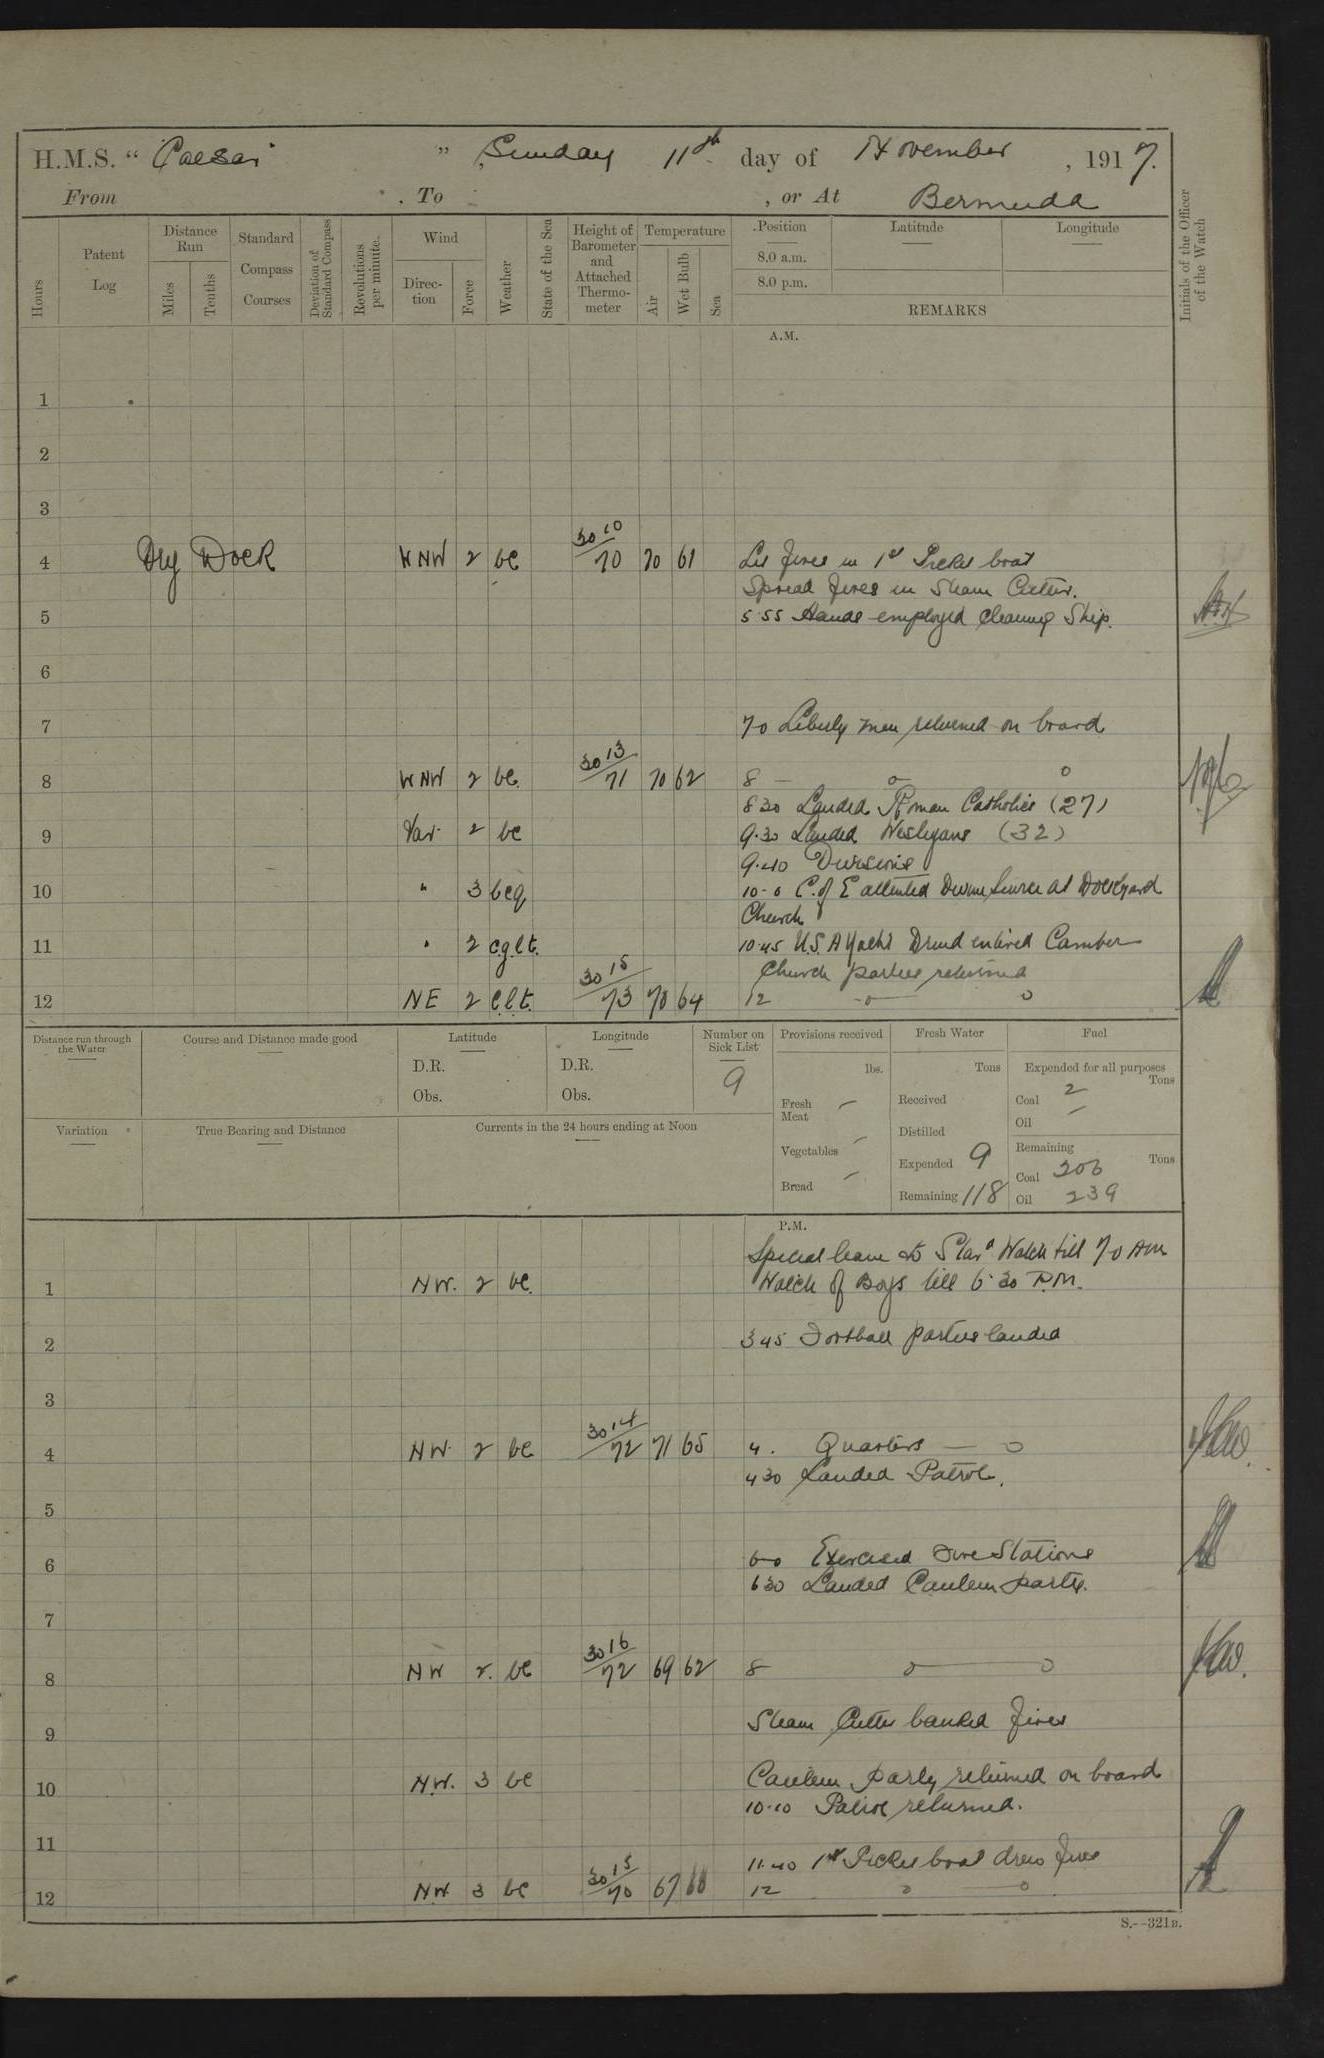 H.M.S. " Caesar " , Sunday 11th day of November , 1917.
From . To , or At Bermuda
Hours
Patent Log
Distance Run
Miles
Tenths
Standard Compass Courses
Deviation of Standard Compass
Revolutions per minute.
Wind
Direction
Force
Weather
State of the Sea
Height of Barometer and Attached Thermometer
Temperature
Air
Wet Bulb
Sea
Position
8.0 a.m.
8.0 p.m.
Latitude
Longitude
REMARKS
Initials of the Officer of the Watch
A.M.
1
2
3
4 Dry Dock WNW 2 bc 30 10/70 70 61 Lit fires in 1st Picket boat
Spread fires in Steam Cutter.
5 5.55 Hands employed cleaning Ship.
6
7 7.0 Liberty men returned on board
8 WNW 2 bc. 30 13/71 70 62 8 — o o
8 30 Landed Roman Catholics (27)
9 Var. 2 bc 9.30 Landed Wesleyans (32)
9.40 Divisions
10 " 3 bcq 10.0 C. of E attended Divine Service at Dockyard
Church
11 " 2 c.g.l.t. 10.45 U.S.A Yacht Druid entered Camber
Church parties returned
12 NE 2 c.l.t. 30 15/73 70 64 12 -o— o
Distance run through the Water
Course and Distance made good
Latitude
D.R.
Obs.
Longitude
D.R.
Obs.
Number on Sick List
9
Provisions received
lbs.
Fresh Meat –
Vegetables –
Bread –
Fresh Water
Tons
Received
Distilled
Expended 9
Remaining 118
Fuel
Expended for all purposes
Tons
Coal 2
Oil –
Remaining
Tons
Coal 206
Oil 239
Variation
True Bearing and Distance
Currents in the 24 hours ending at Noon
P.M.
Special leave to Star'd Watch till 7.0 AM
1 NW. 2 bc. Watch of Boys till 6.30 P.M.
2 3 45 Football parties landed
3
4 NW. 2 bc 30 14/72 71 65 4. Quarters — o
4 30 Landed Patrol.
5
6 6.0 Exercised Fire Stations
6 30 Landed Canteen party.
7
8 NW 2. bc 30 16/72 69 62 8 o — o
9 Steam Cutter banked fires
10 NW. 3 bc Canteen party returned on board
10.10 Patrol returned.
11 11.40 1st Picket boat drew fires
12 NW 3 bc 30 15/70 67 12 o — o
S.--321B.